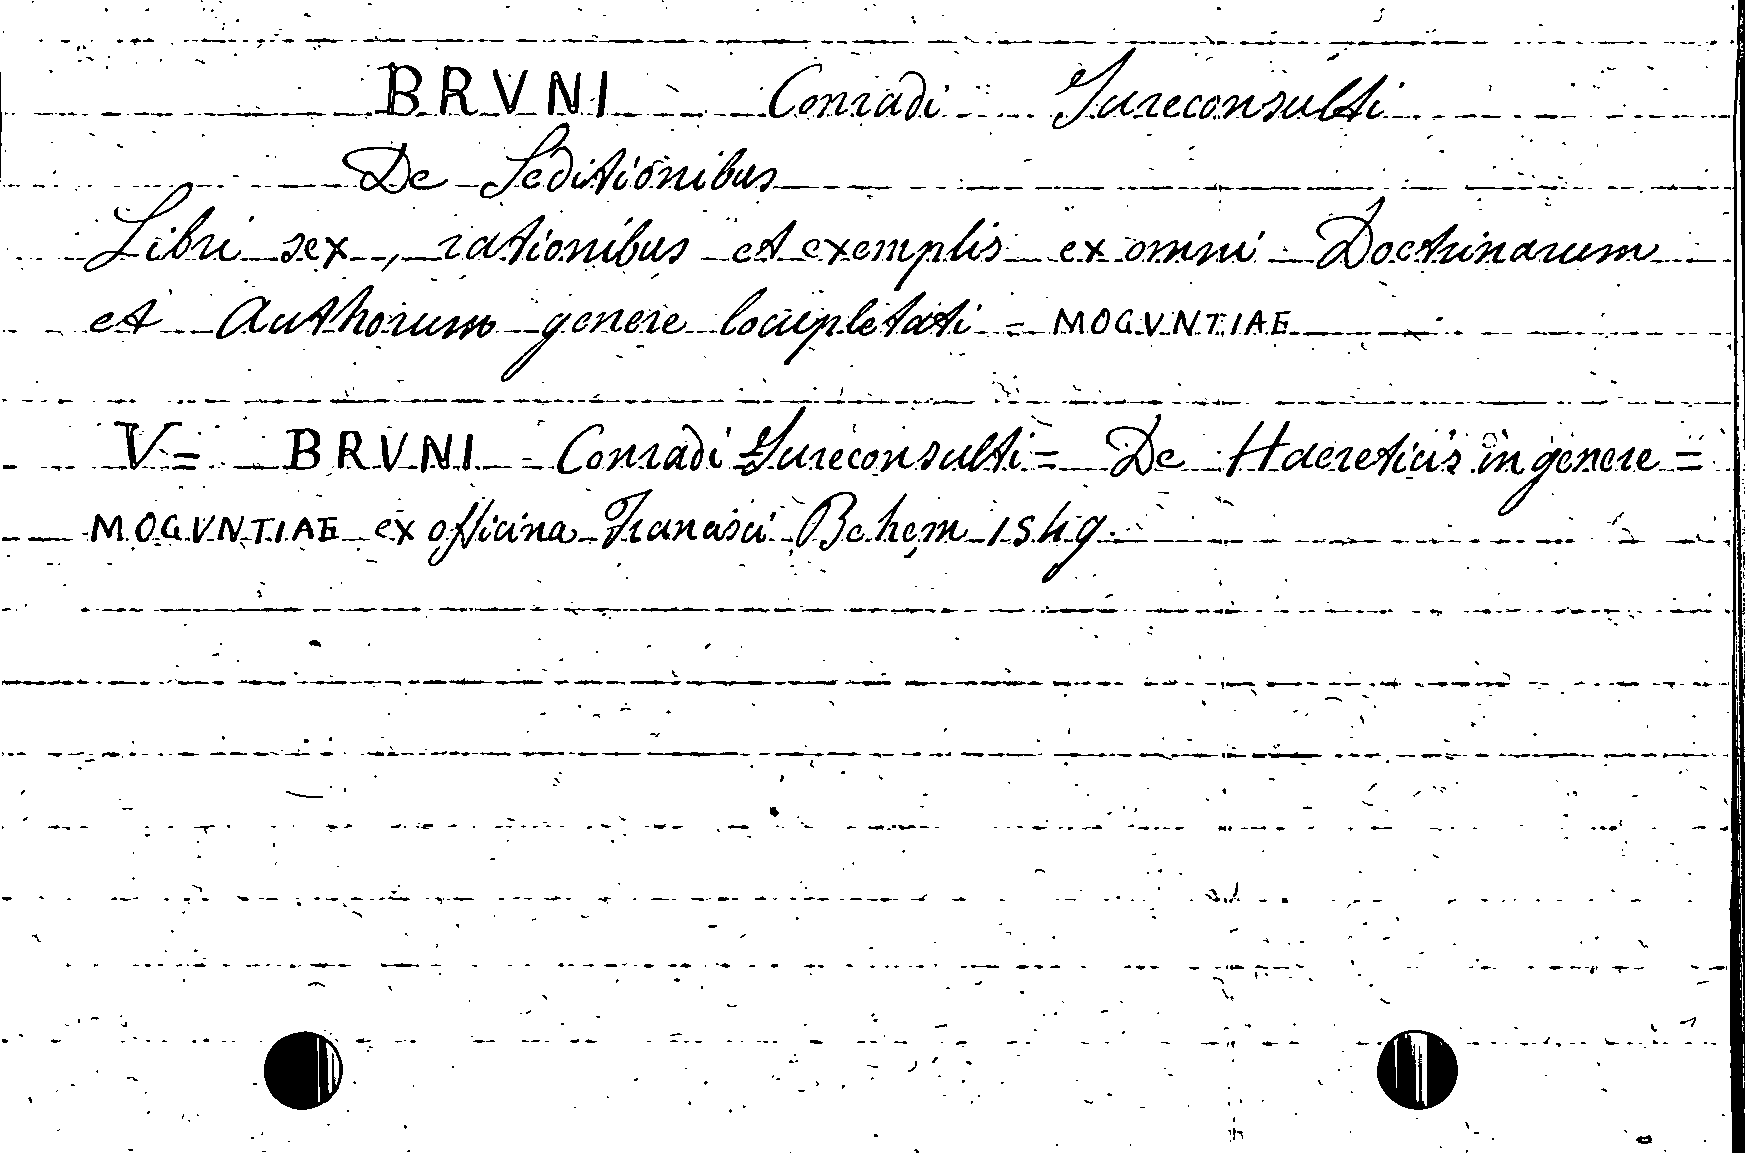 BRVNI Conradi Jureconsulti
De Seditionibus
Libri sex, rationibus et exemplis ex omni Doctrinarum
et Authorum genere locupletati = MOGVNTIAE
V= BRVNI Conradi Jureconsulti = De Haereticis in genere =
MOGVNTIAE ex officina Francisci Behem 1549.